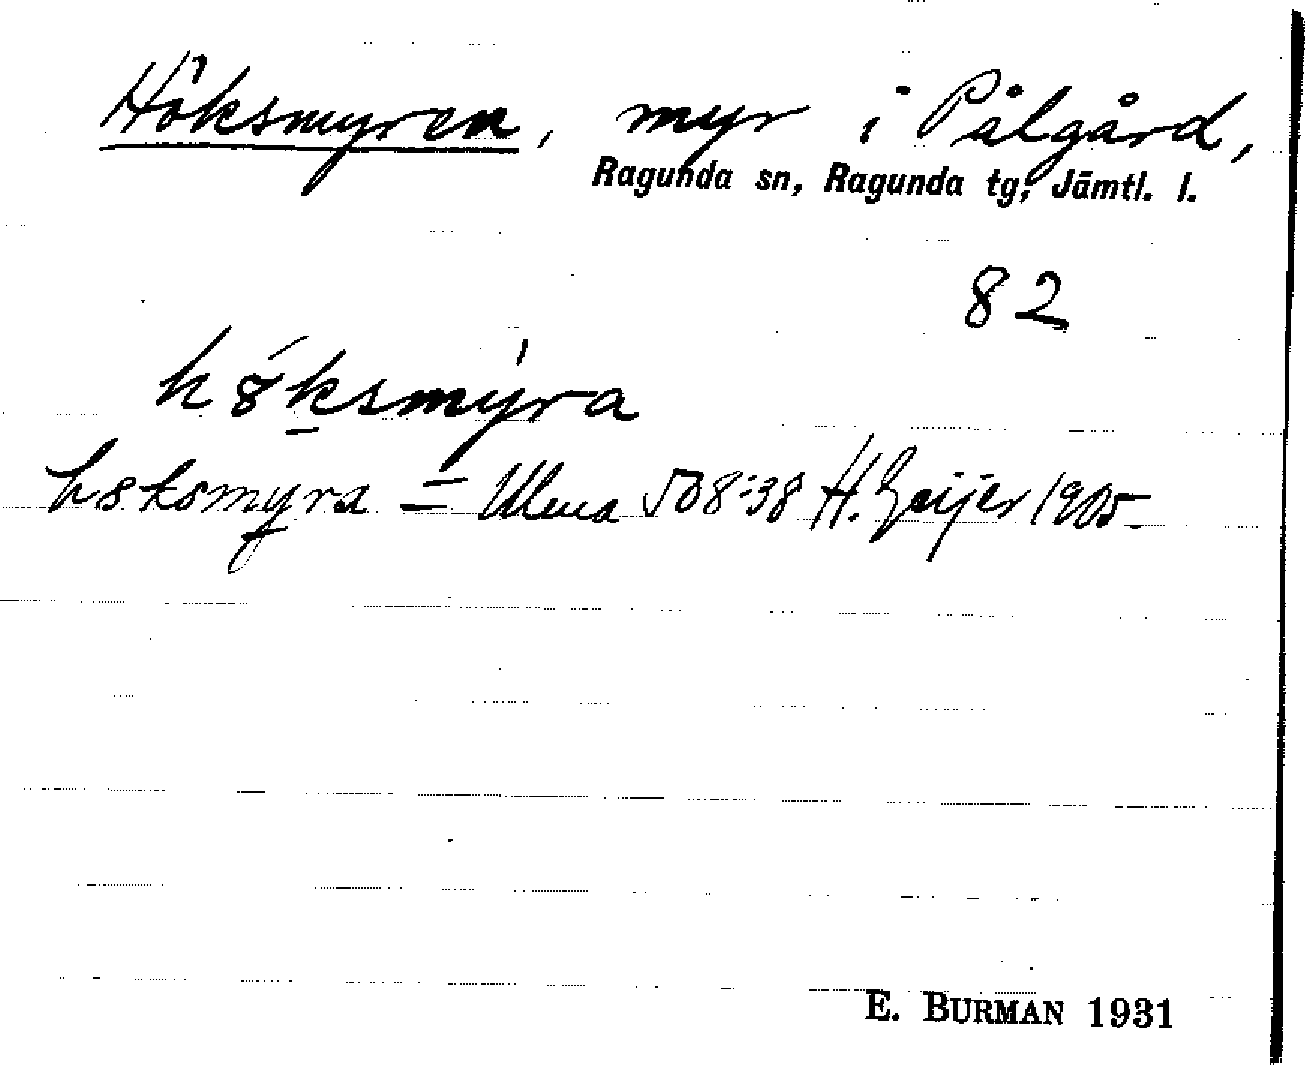 Höksmyren, myr i Pålgård,
Ragunda sn, Ragunda tg, Jämtl. l.
82
h8́ksmýra
h8ksmyra = Ulma 508:38 H. Geijer 1905
E. BURMAN 1931